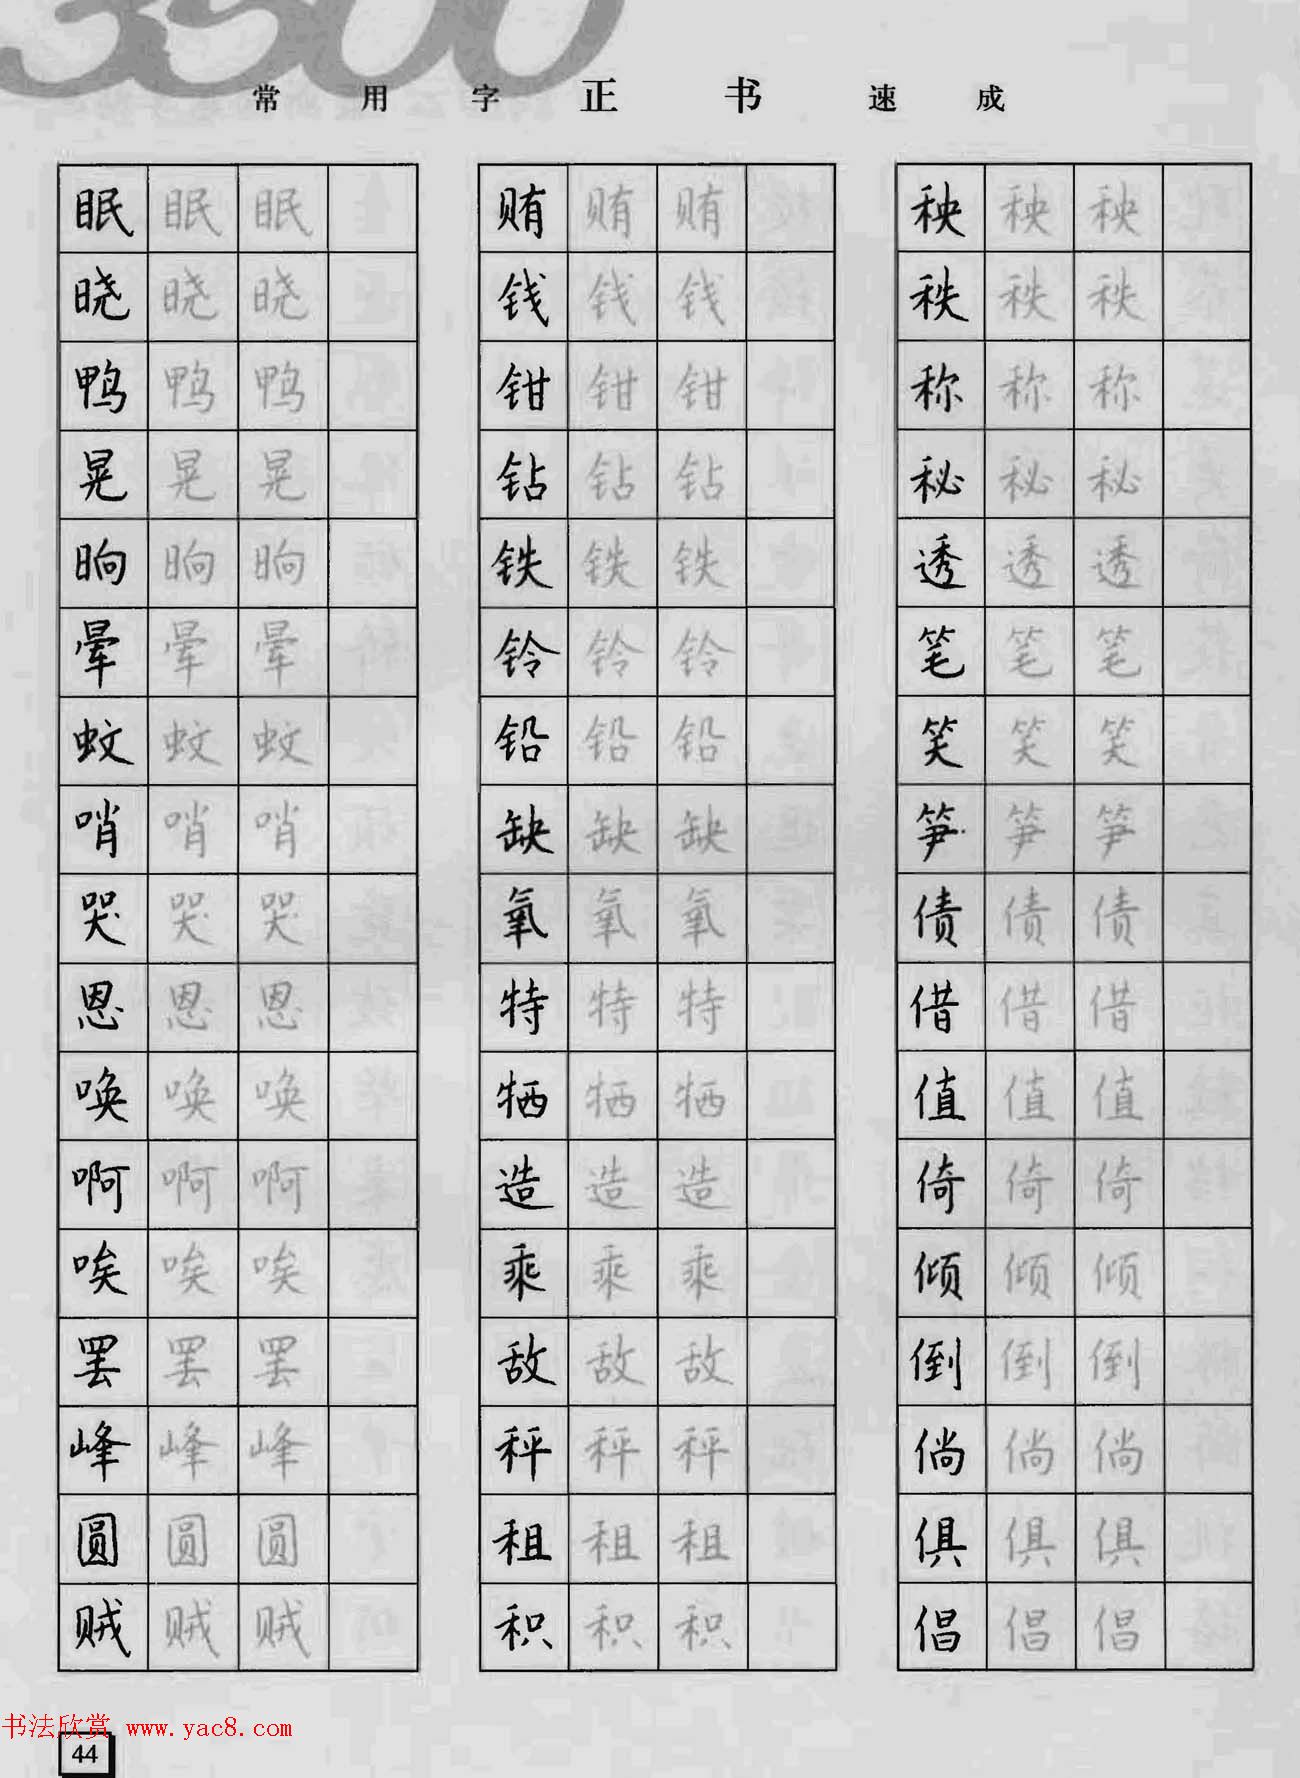 3500
常用字正书速成
眠 眠 眠 贿 贿 贿 秧 秧 秧
晓 晓 晓 钱 钱 钱 秩 秩 秩
鸭 鸭 鸭 钳 钳 钳 称 称 称
晃 晃 晃 钻 钻 钻 秘 秘 秘
晌 晌 晌 铁 铁 铁 透 透 透
晕 晕 晕 铃 铃 铃 笔 笔 笔
蚊 蚊 蚊 铅 铅 铅 笑 笑 笑
哨 哨 哨 缺 缺 缺 笋 笋 笋
哭 哭 哭 氧 氧 氧 债 债 债
恩 恩 恩 特 特 特 借 借 借
唤 唤 唤 牺 牺 牺 值 值 值
啊 啊 啊 造 造 造 倚 倚 倚
唉 唉 唉 乘 乘 乘 倾 倾 倾
罢 罢 罢 敌 敌 敌 倒 倒 倒
峰 峰 峰 秤 秤 秤 倘 倘 倘
圆 圆 圆 租 租 租 俱 俱 俱
贼 贼 贼 积 积 积 倡 倡 倡
书法欣赏 www.yac8.com
44